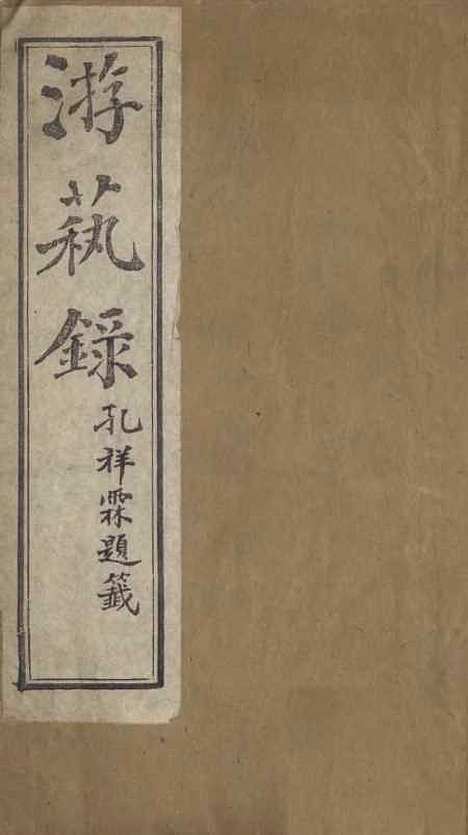 游蓺錄
孔祥霖題籤